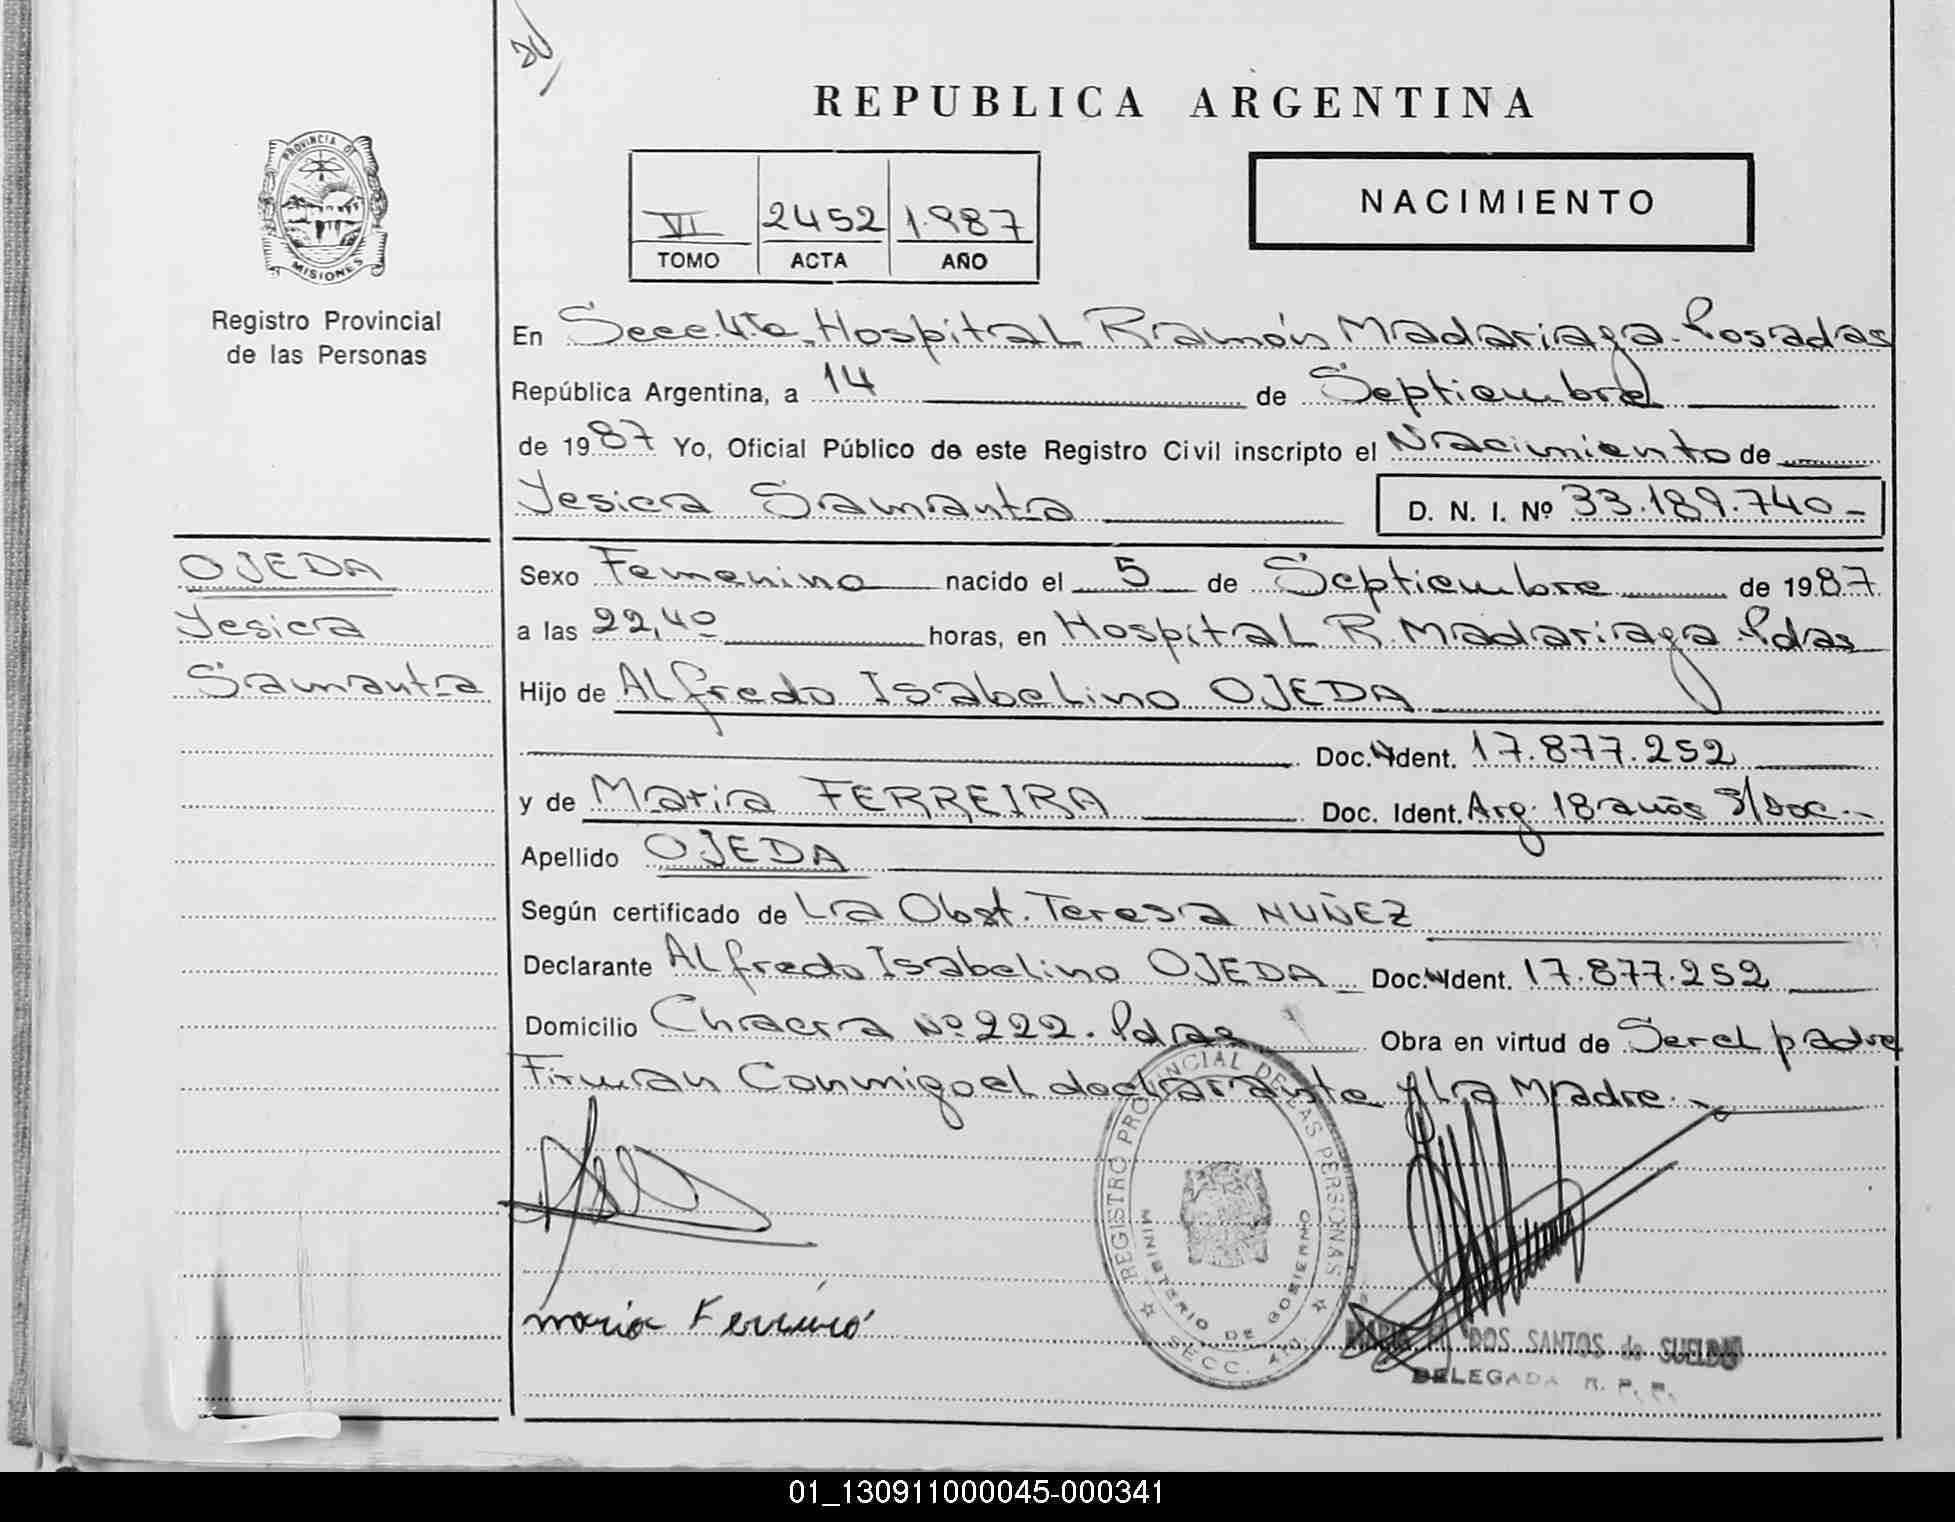 REPUBLICA ARGENTINA
PROVINCIA DE
MISIONES
Registro Provincial
de las Personas
VI 2452 1.987
TOMO ACTA AÑO
NACIMIENTO
En Secc. 4ta. Hospital Ramón Madariaga. Posadas
República Argentina, a 14 de Septiembre
de 1987 Yo, Oficial Público de este Registro Civil inscripto el Nacimiento de
Yesica Samanta D. N. I. Nº 33.189.740-
OJEDA
Yesica
Samanta
Sexo Femenino nacido el 5 de Septiembre de 1987
a las 22,40 horas, en Hospital R. Madariaga. Pdas
Hijo de Alfredo Isabelino OJEDA
Doc. Ident. 17.877.252
y de Maria FERREIRA Doc. Ident. Arg. 18 años S/Doc.-
Apellido OJEDA
Según certificado de La Obst. Teresa NUÑEZ
Declarante Alfredo Isabelino OJEDA Doc. Ident. 17.877.252
Domicilio Chacra Nº 222. Pdas Obra en virtud de Ser el padre
Firman Conmigo el declarante y La Madre.-
REGISTRO PROVINCIAL DE LAS PERSONAS
MINISTERIO DE GOBIERNO
SECC. 4TO
maria Ferreira
DOS SANTOS de SUELDO
DELEGADA R. P. P.
01_130911000045-000341